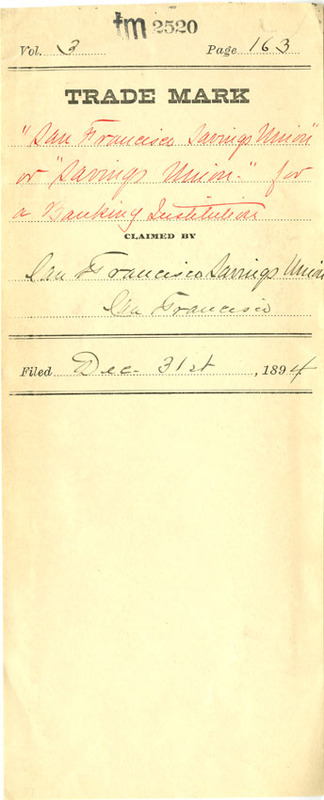 tm 2520
Vol. 3 Page 163
TRADE MARK
"San Francisco Savings Union"
or "Savings Union." for
a Banking Institution
CLAIMED BY
San Francisco Savings Union
San Francisco
Filed Dec. 31st, 1894